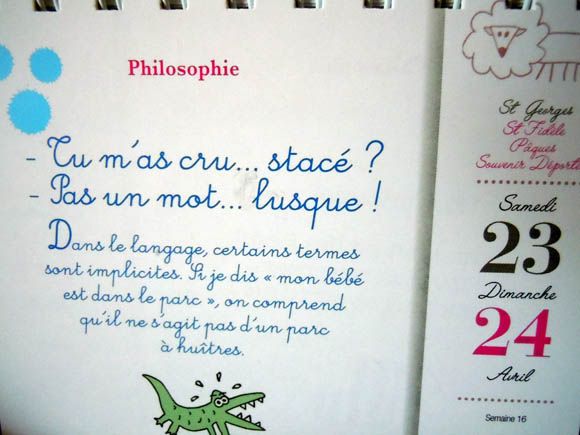 Philosophie
- Tu m'as cru... stacé ?
- Pas un mot... lusque !
Dans le langage, certains termes
sont implicites. Si je dis « mon bébé
est dans le parc », on comprend
qu'il ne s'agit pas d'un parc
à huîtres.
St Georges
St Fidèle
Pâques
Souvenir Déport
Samedi
23
Dimanche
24
Avril
Semaine 16